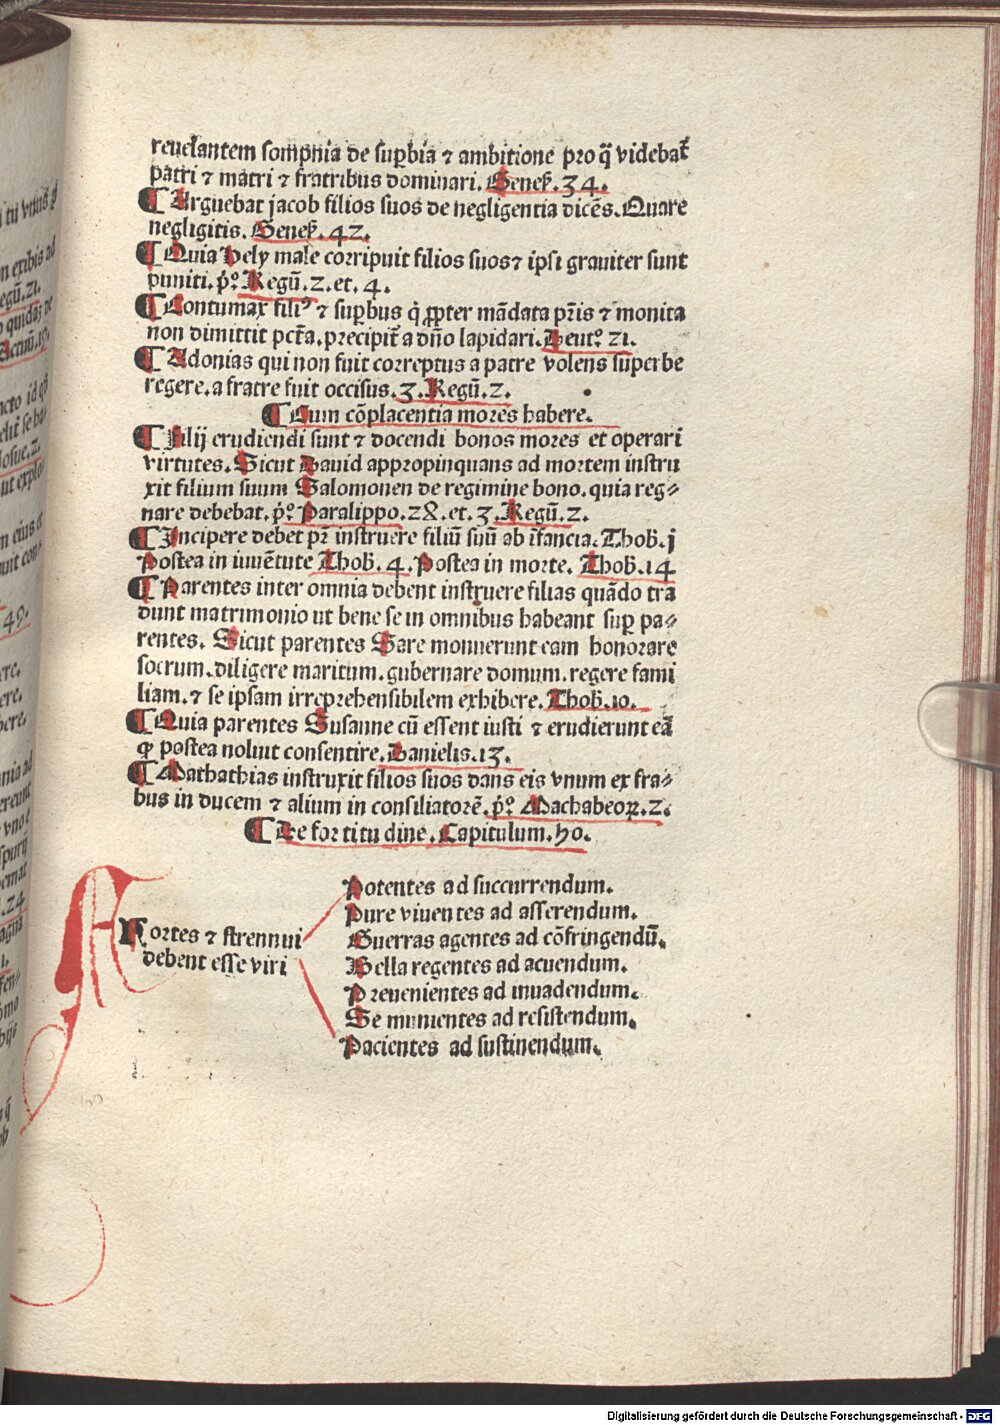 reuelantem sompnia de suꝑbia ⁊ ambitione pro q̃ videbat̃
patri ⁊ matri ⁊ fratribus dominari. Geneẜ. 34.
¶ Arguebat jacob filios suos de negligentia dicẽs. Quare
negligitis. Geneẜ. 42.
¶ Quia Hely male corripuit filios suos ⁊ ipsi grauiter sunt
puniti. p̊. Regũ. 2. et. 4.
¶ Contumax filiꝰ ⁊ suꝑbus q̇ ꝓpter mãdata pr̃is ⁊ monita
non dimittit pct̃a. precipit̃ a dño lapidari. Deut̊. 21.
¶ Adonias qui non fuit correptus a patre volens superbe
regere. a fratre fuit occisus. 3. Regũ. 2.
¶ Cum cõplacentia mores habere.
¶ Filij erudiendi sunt ⁊ docendi bonos mores et operari
virtutes. Sicut Dauid appropinquans ad mortem instru
xit filium suum Salomonen de regimine bono. quia reg⸗
nare debebat. p̊. Paralippo. 28. et. 3. Regũ. 2.
¶ Incipere debet pr̃ instruere filiũ suũ ab ĩfancia. Thob̃. j
Postea in iuuẽtute Thob̃. 4. Postea in morte. Thob̃. 14
¶ Parentes inter omnia debent instruere filias quãdo tra
dunt matrimonio ut bene se in omnibus habeant suꝑ pa⸗
rentes. Sicut parentes Sare monuerunt eam honorare
socrum. diligere maritum. gubernare domum. regere fami
liam. ⁊ se ipsam irreprehensibilem exhibere. Thob̃. 10.
¶ Quia parentes Susanne cũ essent iusti ⁊ erudierunt eã
ꝙ postea noluit consentire. Danielis. 13.
¶ Mathathias instruxit filios suos dans eis vnum ex fra⸗
bus in ducem ⁊ alium in consiliatorẽ. p̊. Machabeoꝝ. 2.
¶ De fortitudine. Capitulum. 50.
Fortes ⁊ strennui
debent esse viri
Potentes ad succurrendum.
Pure viuentes ad asserendum.
Guerras agentes ad cõfringendũ.
Bella regentes ad acuendum.
Preuenientes ad inuadendum.
Se munientes ad resistendum.
Pacientes ad sustinendum.
Digitalisierung gefördert durch die Deutsche Forschungsgemeinschaft - DFG